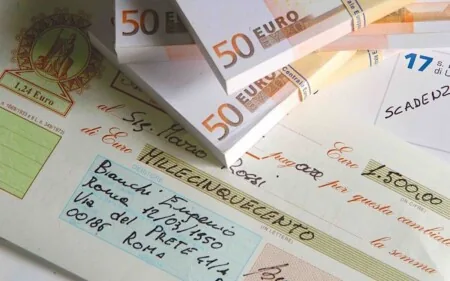 50 EURO
50 EURO
50 EURO
17
SCADENZ
1,24 Euro
al Sig. Mario Rossi
pagherò
Euro 1.500,00
di Euro MILLECINQUECENTO
per questa cambial
la somma
IN LETTERE
Bianchi Eugenio
Roma 12/03/1950
Via del PRETE 41/A
00186 ROMA